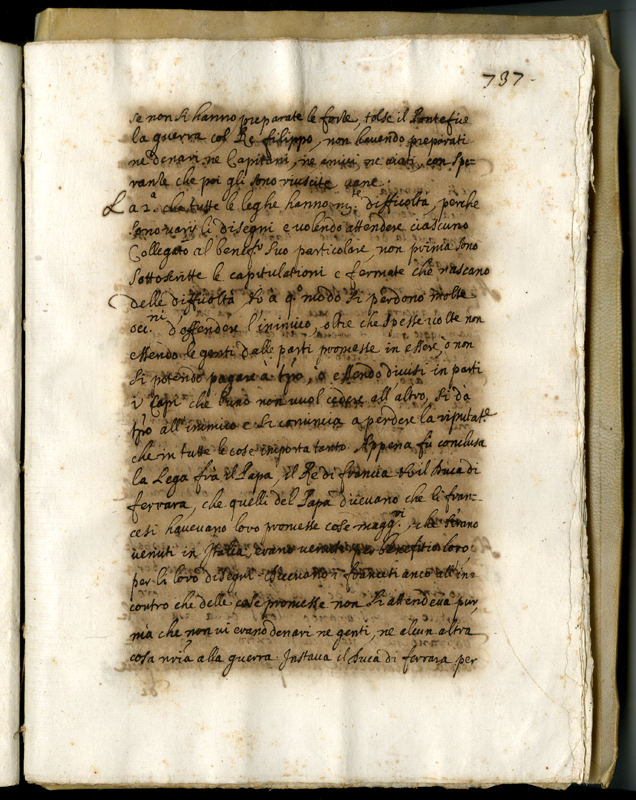 737.
se non si hanno preparate le forze, tolse il Pontefice
la guerra col Re filippo, non havendo preparati
ne denari, ne Capitani, ne amici, ne aiuti, con spe-
ranze che poi gli sono riuscite vane.
La 2.ª che tutte le leghe hanno m.te difficoltà, perche
sono varij li disegni e volendo attendere ciascuno
Collegato al benef.º suo particolare, non prima sono
sottoscritte le capitulationi e fermate che nascano
delle difficoltà. Et a q.º modo si perdono molte
occ.ni d'offendere l'inimico, oltre che spesse volte non
essendo le genti dalle parti promesse in essere, ò non
si potendo pagare à tpo, ò essendo divisi in parti
i Capi che l'uno non vuol cedere all'altro, si dà
tpo all'inimico e si comincia a perdere la riputat.e
che in tutte le cose importa tanto. Appena fù conclusa
la Lega frà il Papa, il Re di francia et il Duca di
ferrara, che quelli del Papa dicevano che li fran-
cesi havevano loro promesse cose magg.ri, e che s'erano
venuti in Italia, erano venuti per benefitio loro
per li loro disegni. Dicevano i francesi anco all'in-
contro che delle cose promesse non si attendeva pur
mà che non vi erano denari ne genti, ne alcun altra
cosa nria alla guerra. Instava il Duca di ferrara per